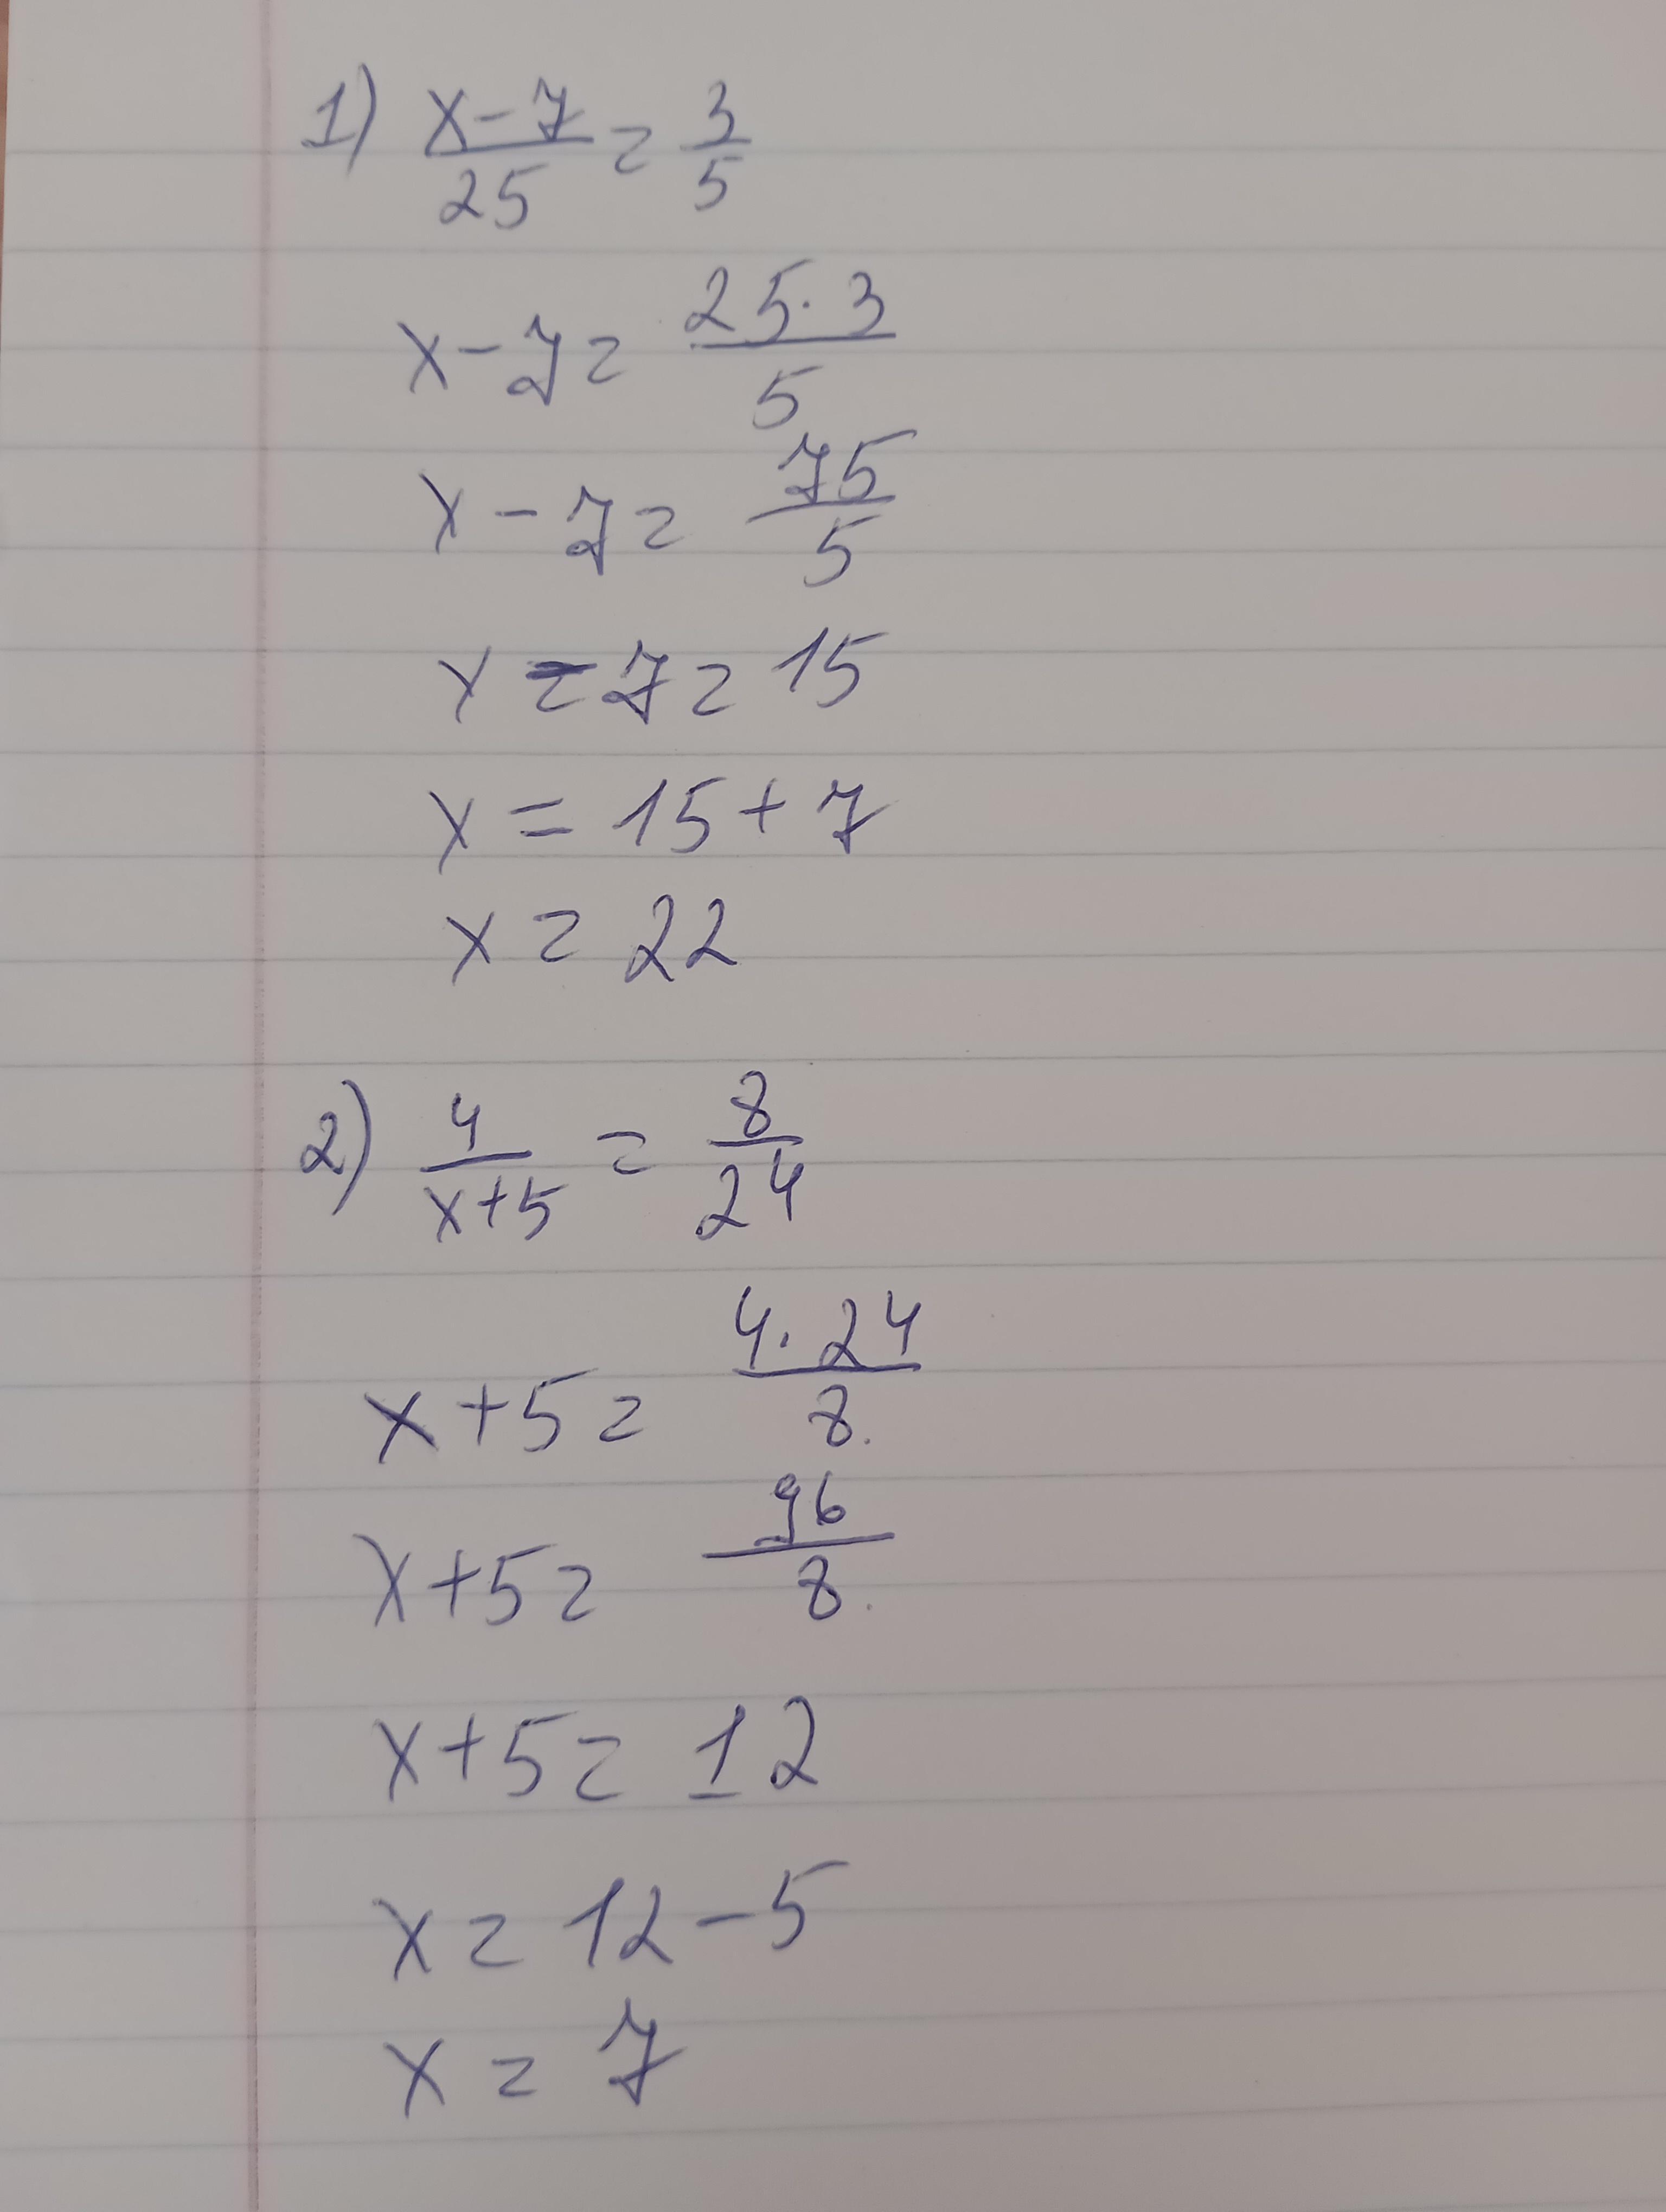 1) x-7/25 = 3/5
x-7 = 25·3/5
x-7 = 75/5
x-7 = 15
x = 15+7
x = 22
2) 4/x+5 = 8/24
x+5 = 4·24/8
x+5 = 96/8
x+5 = 12
x = 12-5
x = 7